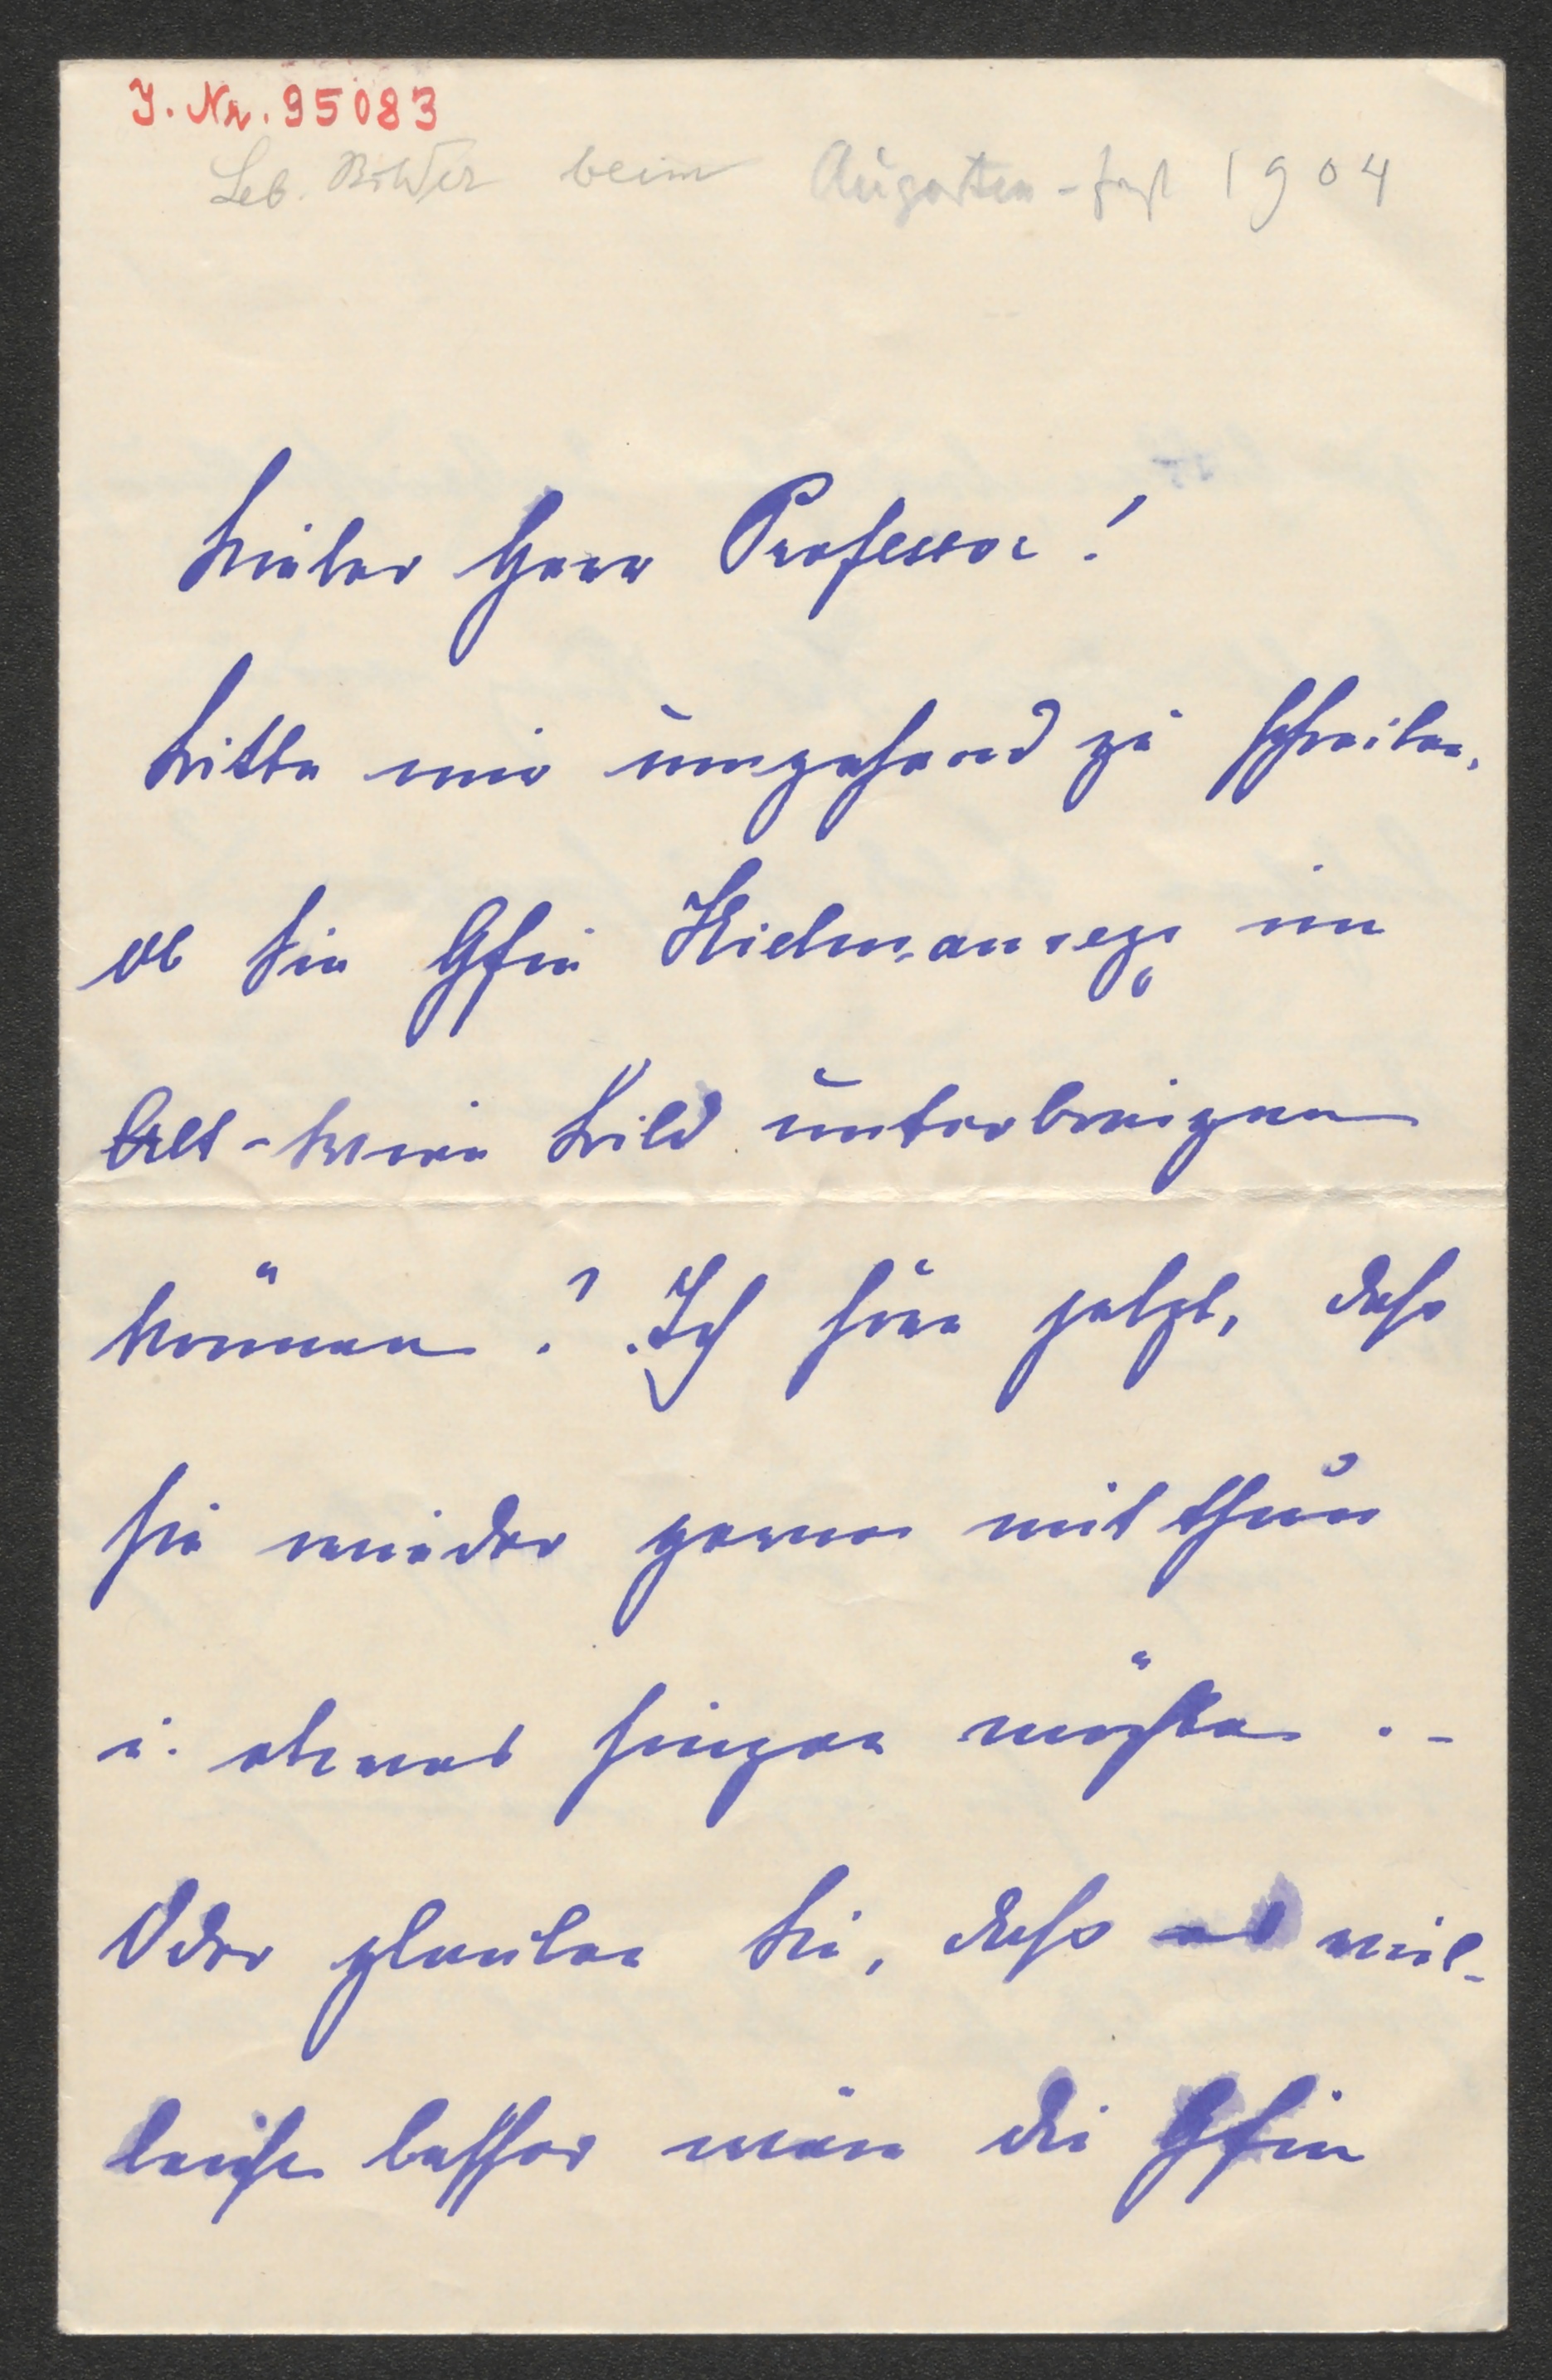 J. Nr. 95083
Leb. Bilder beim Augarten-fest 1904
Lieber Herr Professor!
Bitte mir umgehend zu schreiben,
ob Sie Gfin Kielmansegg im
Alt-Wien Bild unterbringen
können? Ich höre jetzt, dass
sie wieder gerne mitthun
u. etwas singen möchte. -
Oder glauben Sie, dass es viel-
leicht besser wäre die Gfin